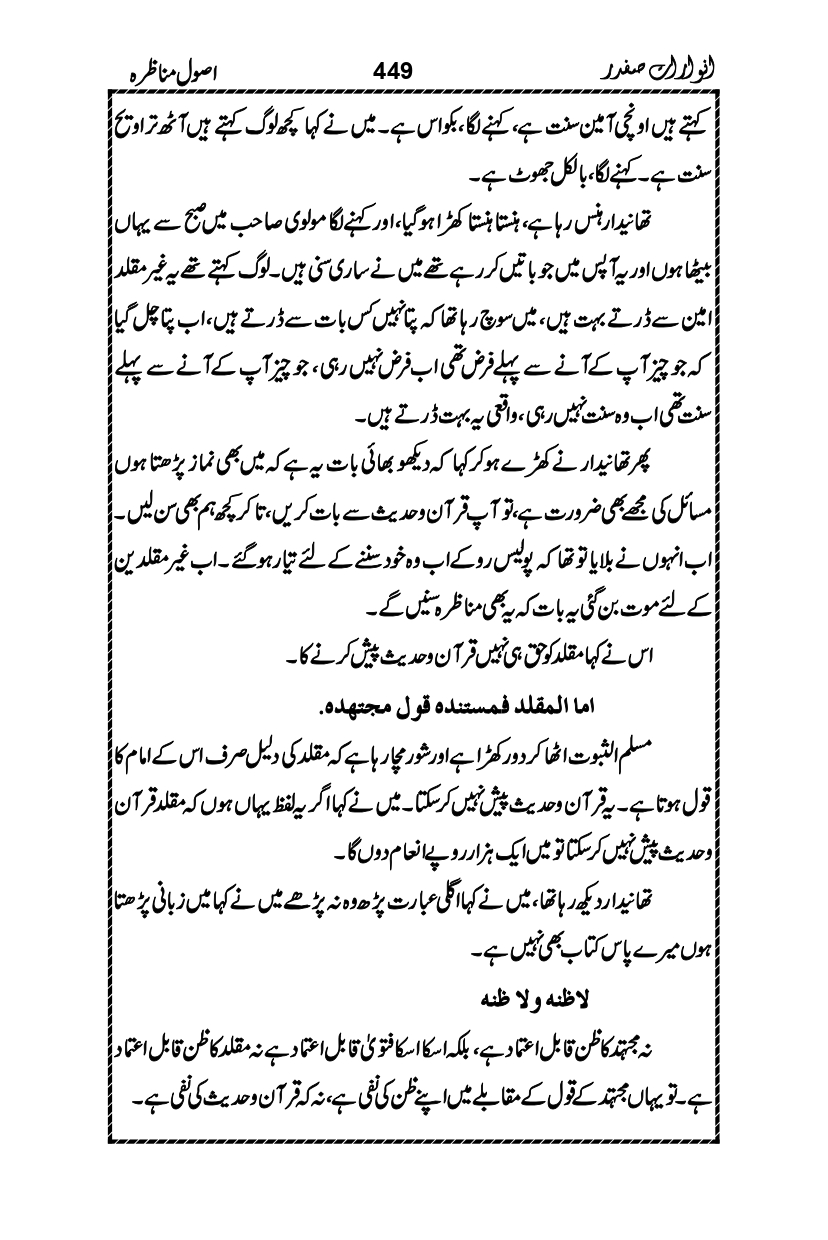 انوارات صفدر 449 اصول مناظرہ
کہتے ہیں اونچی آمین سنت ہے، کہنے لگا، بکواس ہے۔ میں نے کہا کچھ لوگ کہتے ہیں آٹھ تراویح
سنت ہے۔ کہنے لگا، بالکل جھوٹ ہے۔
تھانیدار ہنس رہا ہے، ہنستا ہنستا کھڑا ہو گیا، اور کہنے لگا مولوی صاحب میں صبح سے یہاں
بیٹھا ہوں اور یہ آپس میں جو باتیں کر رہے تھے میں نے ساری سنی ہیں۔ لوگ کہتے تھے یہ غیر مقلد
امین سے ڈرتے بہت ہیں، میں سوچ رہا تھا کہ پتا نہیں کس بات سے ڈرتے ہیں، اب پتا چل گیا
کہ جو چیز آپ کے آنے سے پہلے فرض تھی اب فرض نہیں رہی، جو چیز آپ کے آنے سے پہلے
سنت تھی اب وہ سنت نہیں رہی، واقعی یہ بہت ڈرتے ہیں۔
پھر تھانیدار نے کھڑے ہو کر کہا کہ دیکھو بھائی بات یہ ہے کہ میں بھی نماز پڑھتا ہوں
مسائل کی مجھے بھی ضرورت ہے، تو آپ قرآن وحدیث سے بات کریں، تاکہ کچھ ہم بھی سن لیں۔
اب انہوں نے بلایا تو تھا کہ پولیس روکے اب وہ خود سننے کے لئے تیار ہو گئے۔ اب غیر مقلدین
کے لئے موت بن گئی یہ بات کہ یہ بھی مناظرہ سنیں گے۔
اس نے کہا مقلد کو حق ہی نہیں قرآن وحدیث پیش کرنے کا۔
اما المقلد فمستنده قول مجتهده.
مسلم الثبوت اٹھا کر دور کھڑا ہے اور شور مچا رہا ہے کہ مقلد کی دلیل صرف اس کے امام کا
قول ہوتا ہے۔ یہ قرآن وحدیث پیش نہیں کر سکتا۔ میں نے کہا اگر یہ لفظ یہاں ہوں کہ مقلد قرآن
وحدیث پیش نہیں کر سکتا تو میں ایک ہزار روپے انعام دوں گا۔
تھانیدار دیکھ رہا تھا، میں نے کہا اگلی عبارت پڑھ وہ نہ پڑھے میں نے کہا میں زبانی پڑھتا
ہوں میرے پاس کتاب بھی نہیں ہے۔
لاظنه ولا ظنه
نہ مجتہد کا ظن قابل اعتماد ہے، بلکہ اسکا اسکا فتویٰ قابل اعتماد ہے نہ مقلد کا ظن قابل اعتماد
ہے۔ تو یہاں مجتہد کے قول کے مقابلے میں اپنے ظن کی نفی ہے، نہ کہ قرآن وحدیث کی نفی ہے۔